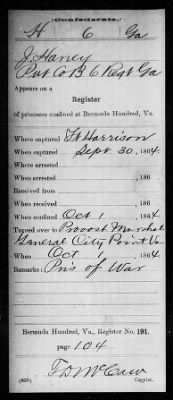 Confederate.
H 6 Ga
J. Haney
Pvt Co B, 6 Regt Ga
Appears on a
Register
of prisoners confined at Bermuda Hundred, Va.
Where captured Ft Harrison
When captured Sept 30, 1864
Where arrested
When arrested , 186
Received from
When received , 186
When confined Oct 1, 1864
Turned over to Provost Marshal
General City Point Va
When Oct 1, 1864
Remarks: Pris of War
Bermuda Hundred, Va., Register No. 191,
page 104
T.D. McCaw
Copyist.